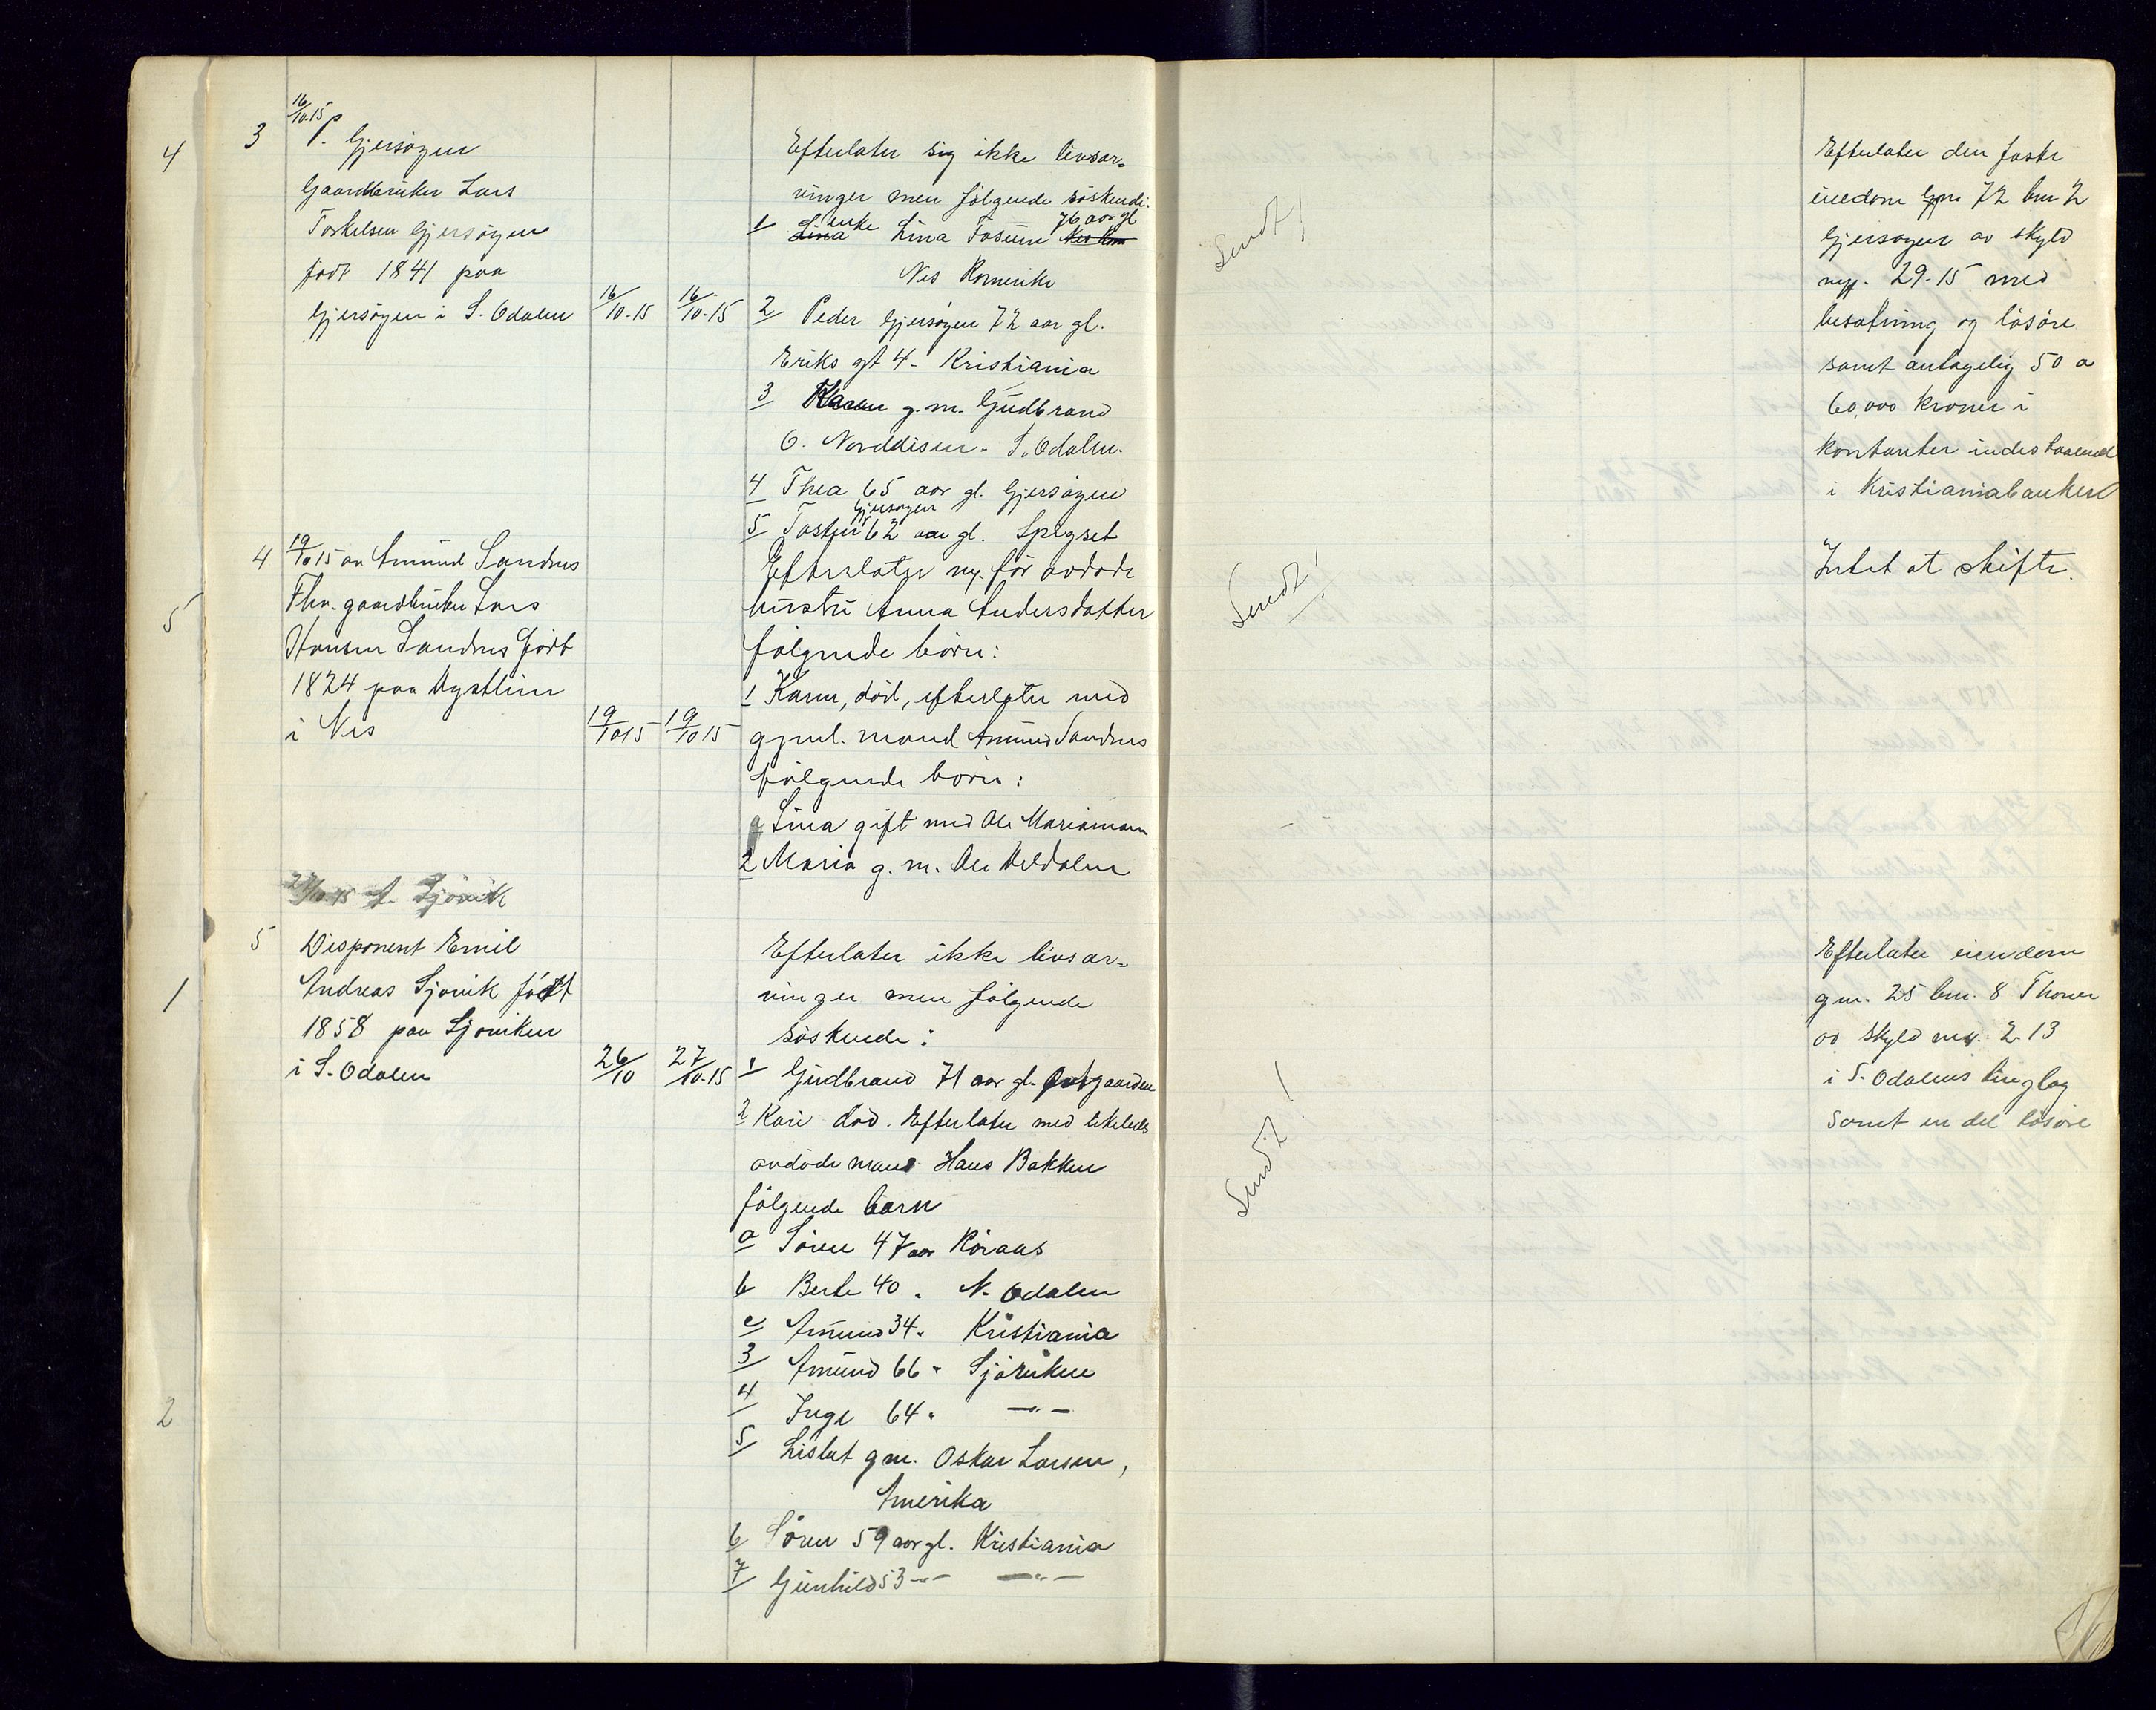 4
3
16/10-15 P. Gjersøyen
Gaardbruker Lars
Torkelsen Gjersøyen
født 1841 paa
Gjersøyen i S. Odalen
16/10-15
16/10-15
Efterlater sig ikke livsar-
vinger men følgende søskende:
1 Lina enke Lina Fosum Nes Rom 76 aar gl
Nes Romerike
2 Peder Gjersøyen 72 aar gl.
Eriks gt 4 - Kristiania
3 Karen g.m. Gudbrand
O. Norddisen - S. Odalen.
4 Thea 65 aar gl. Gjersøyen
5 Gjersøyen 62 aar gl.
Sendt!
Efterlater den faste
eiendom Gm 72 bm 2
Gjersøyen av skyld
29.15 med
besætning og løsøre
samt antagelig 50 a
60,000 kroner i
kontanter indestaaend
i Kristianiabanken
5
4
19/10 15 av Amund Sandnes
Fhv. gaardbruker Lars
Hansen Sandnes født
1824 paa
i Nes
19/10 15
19/10 15
Efterlater m. før avdøde
hustru Anna Andersdatter
følgende børn:
1 Karen, død, efterlater med
gjenl. mand Amund Sandnes
følgende børn:
Lina gift med Ole
2 Maria g. m. Ole
Sendt!
Intet at skifte.
1
27/10-15 A. Sjøvik
5
Disponent Emil
Andreas Sjøvik født
1858 paa Sjøviken
i S. Odalen
26/10
27/10-15
Efterlater ikke livsar-
vinger men følgende
søskende:
1 Gudbrand 71 aar gl.
2 Kari død. Efterlater med likeledes
avdøde mand Hans Bakken
følgende barn
a Søren 47 aar Røraas
b Berte 40 " N. Odalen
c Amund 34 " Kristiania
3 Amund 66 " Sjøviken
4 Inge 64 " —"—
5 Lisbet gm. Oskar Larsen,
Amerika
6 Søren 59 aar gl. Kristiania
7 Gunhild 53 —"— —"—
Sendt!
Efterlater eiendom
gm. 25 bm. 8 Thoner
av skyld mrk. 2.13
i S. Odalens tinglag
samt en del løsøre
2